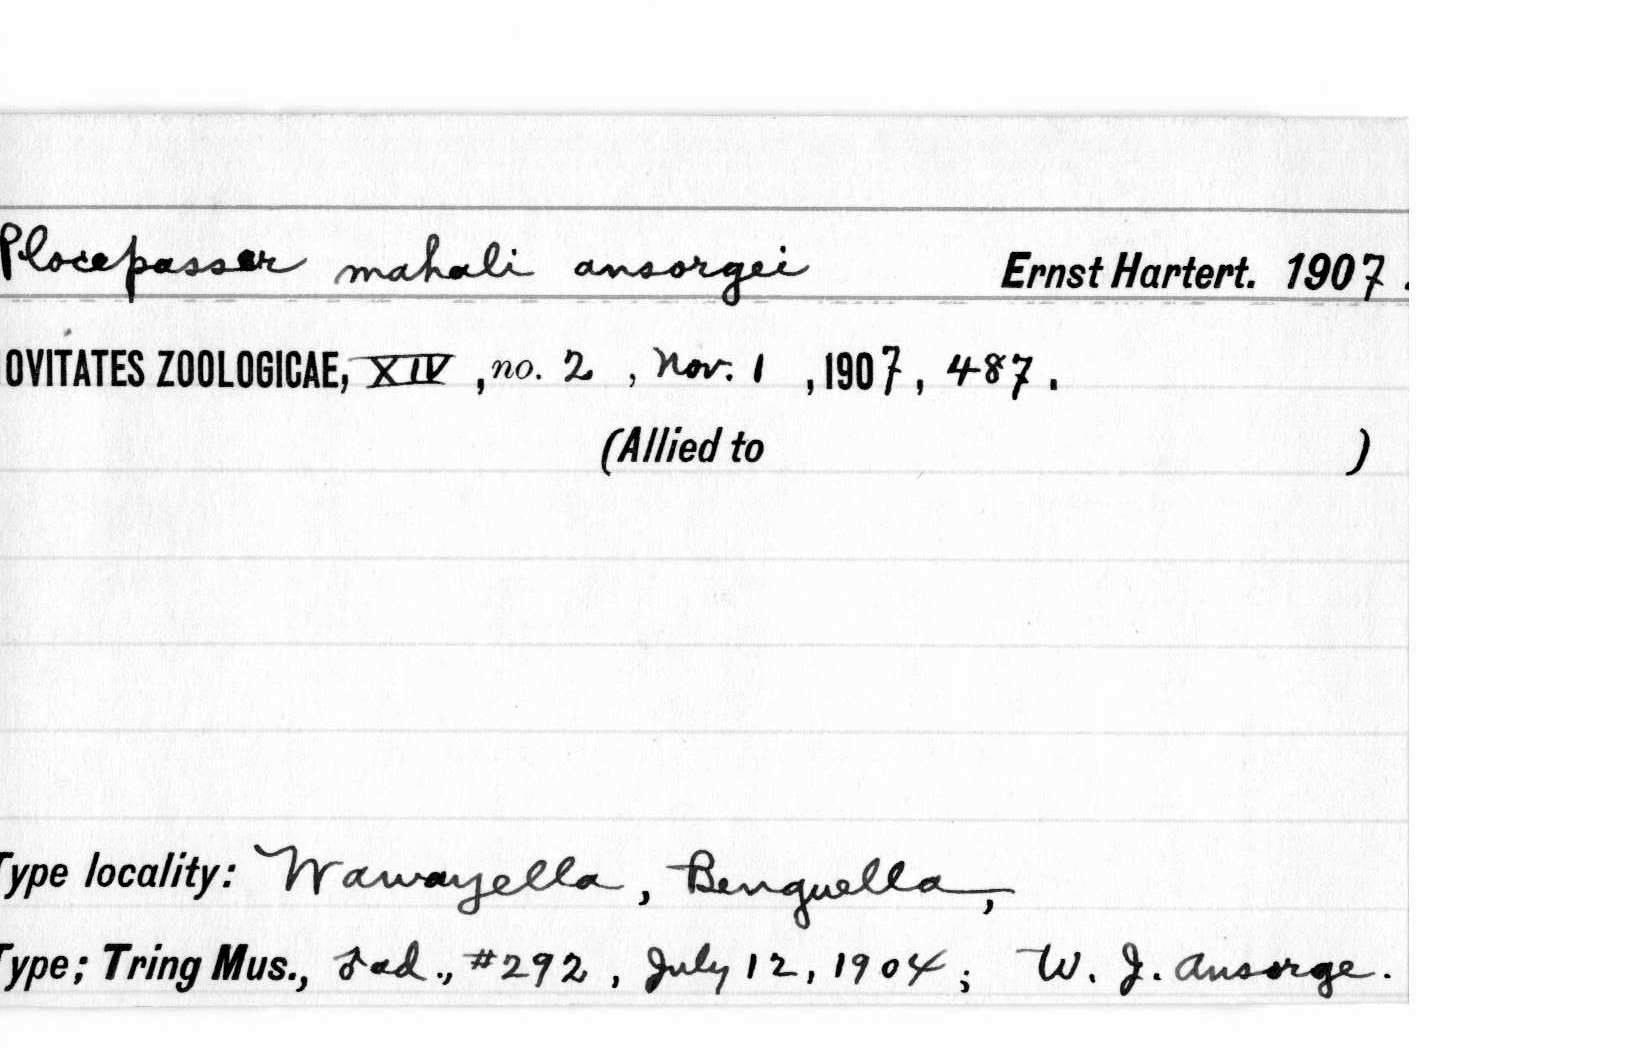 Plocepasser mahali ansorgei Ernst Hartert. 1907.
OVITATES ZOOLOGICAE, XIV, no. 2, Nov. 1, 1907, 487.
(Allied to )
Type locality: Wawayella, Benguella,
Type; Tring Mus., ♂ad., #292, July 12, 1904; W. J. Ansorge.